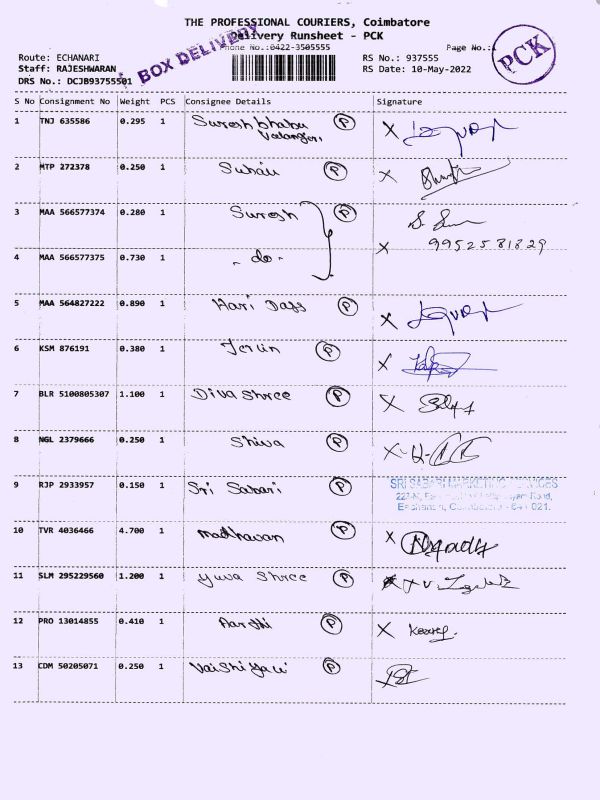 THE PROFESSIONAL COURIERS, Coimbatore
Delivery Runsheet - PCK
Phone No.:0422-3505555
Page No.:
Route: ECHANARI
RS No.: 937555
Staff: RAJESHWARAN
RS Date: 10-May-2022
DRS No.: DCJB93755501
BOX DELIVERY
PCK
S No Consignment No Weight PCS Consignee Details Signature
1 TNJ 635586 0.295 1 Suresh bhabu P X
2 MTP 272378 0.250 1 P X
3 MAA 566577374 0.280 1 Suresh P
4 MAA 566577375 0.730 1 - do - X 9952581829
5 MAA 564827222 0.890 1 Hari Dass P X
6 KSM 876191 0.380 1 Jerlin P X
7 BLR 5100805307 1.100 1 Diva Shree P X
8 NGL 2379666 0.250 1 Shiva P X
9 RJP 2933957 0.150 1 Sri Sabari P SRI SABARI MARKETING SERVICES
Road,
Echanari, Coimbatore - 641 021.
10 TVR 4036466 4.700 1 madhavan P X
11 SLM 295229560 1.200 1 yuva Shree P X
12 PRO 13014855 0.410 1 P X
13 CDM 50205071 0.250 1 P